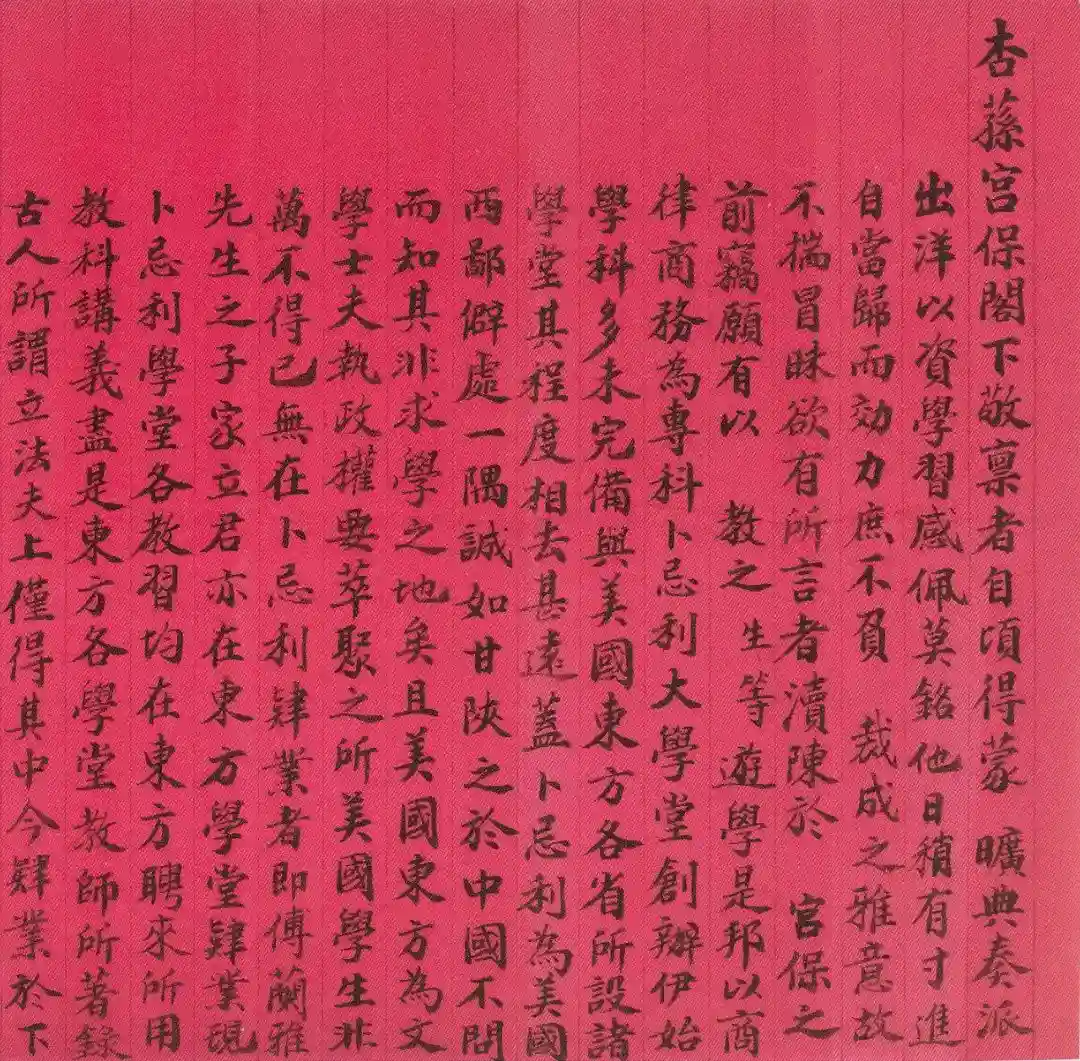 杏蓀宮保閣下敬禀者自頃得蒙 曠典奏派
出洋以資學習感佩莫銘他日稍有寸進
自當歸而効力庶不負 裁成之雅意故
不揣冒昧欲有所言者瀆陳於 宮保之
前竊願有以 教之 生等遊學是邦以商
律商務為專科卜忌利大學堂創辦伊始
學科多未完備與美國東方各省所設諸
學堂其程度相去甚遠蓋卜忌利為美國
西鄙僻處一隅誠如甘陝之於中國不問
而知其非求學之地矣且美國東方為文
學士夫執政權要萃聚之所美國學生非
萬不得已無在卜忌利肄業者即傅蘭雅
先生之子家立君亦在東方學堂肄業硯
卜忌利學堂各教習均在東方聘來所用
教科講義盡是東方各學堂教師所著錄
古人所謂立法夫上僅得其中今肄業於下